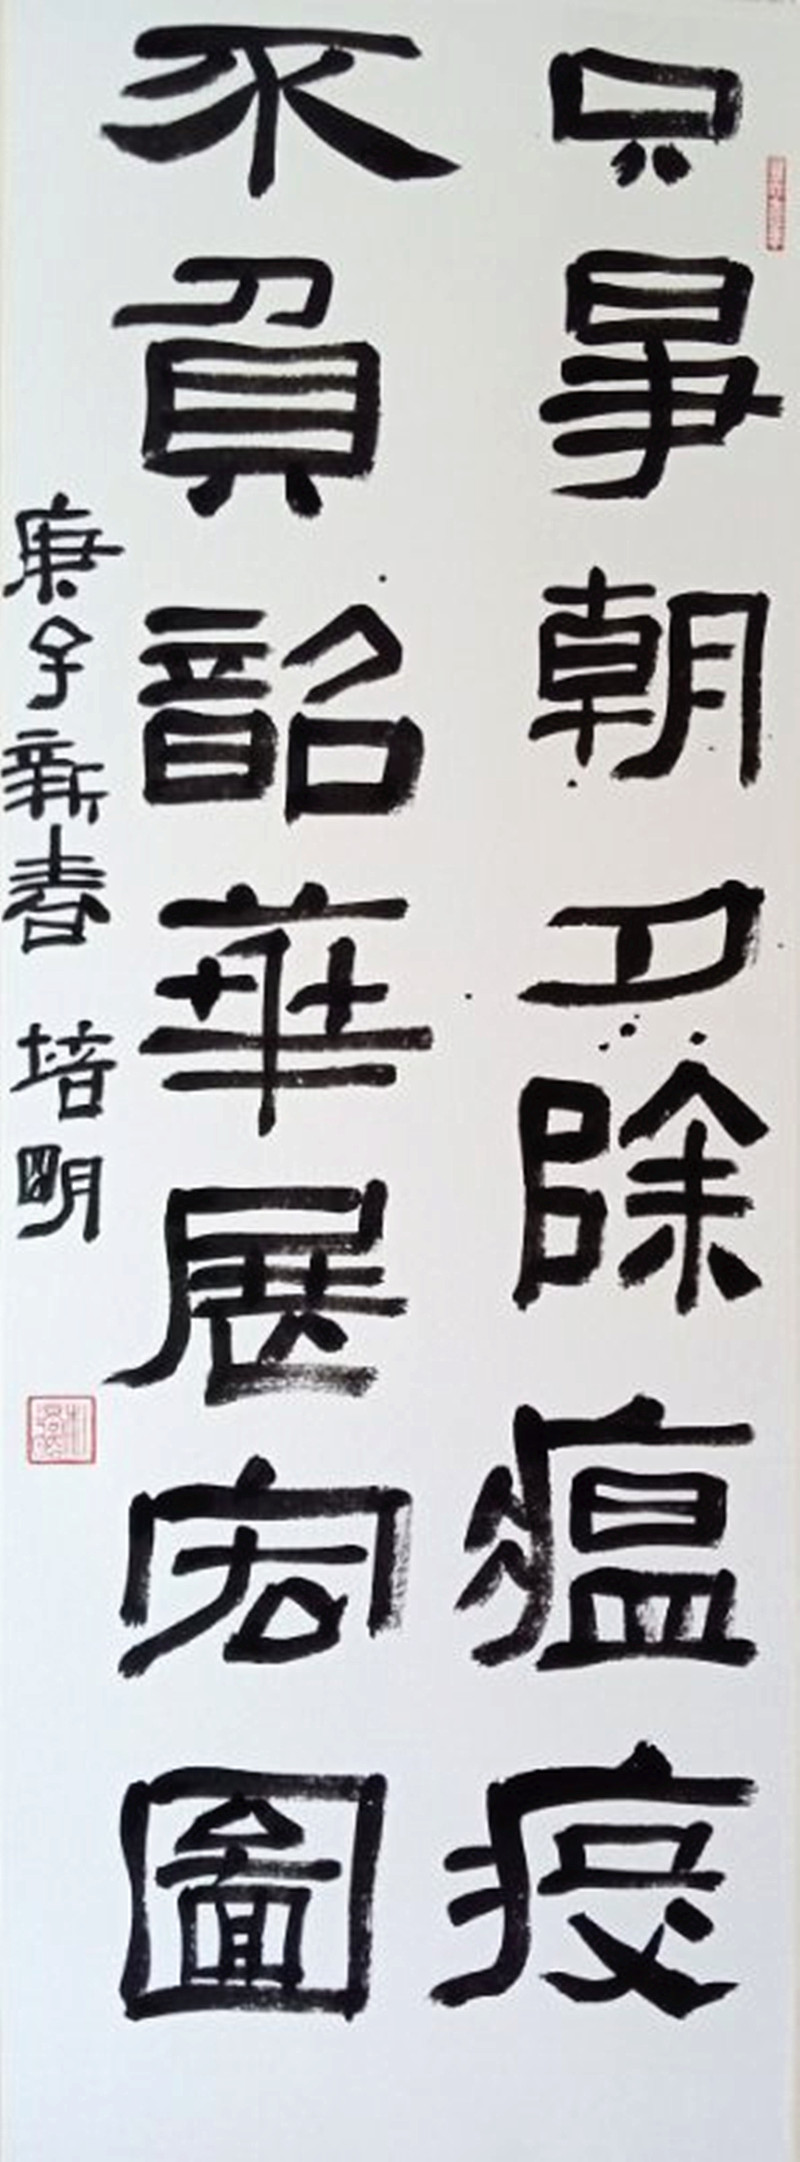 只爭朝夕除瘟疫
不負韶華展宏圖
庚子新春 培明